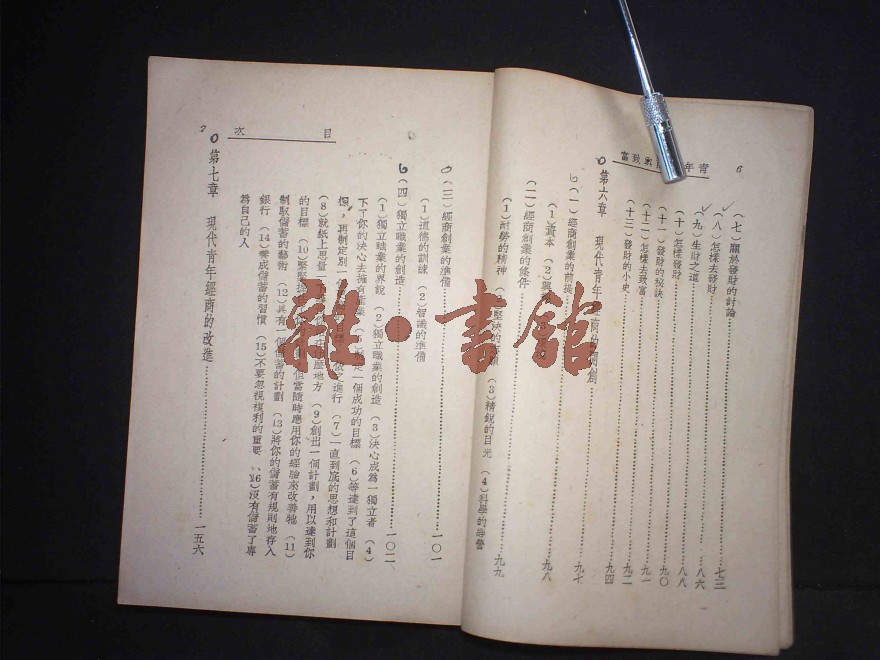 6
青年
致富
(七)關於發財的討論……七三
(八)怎樣去發財……八六
(九)生財之道……八八
(十)怎樣發財……九〇
(十一)發財的秘訣……九一
(十二)怎樣去致富……九二
(十三)發財的小史……九四
第六章 現代青年 商的 創……九七
(一)經商創業的前提……九八
(1)資本 (2)
(二)經商創業的條件……九九
(1)耐勞的精神 堅決的 (3)精銳的目光 (4)科學的
目次
(三)經商創業的準備……一〇一
(1)道德的訓練 (2)智識的準備
(四)獨立職業的創造……一〇二
(1)獨立職業的界說 (2)獨立職業的創造 (3)決心成為一獨立者 (4)
下了你的決心去擁有產業 定一個成功的目標 (6)等達到了這個目
標,再制定別一 目標 依之進行 (7)一直到底的思想和計劃
(8)就紙上思量一 地方 (9)創出一個計劃,用以達到你
的目標 (10)緊緊 但當隨時應用你的經驗來改善牠 (11)
制取儲蓄的藝術 (12)具有一個儲蓄的計劃 (13)將你的儲蓄有規則地存入
銀行 (14)養成儲蓄的習慣 (15)不要忽視複利的重要 (16)沒有儲蓄了專
為自己的人
第七章 現代青年經商的改進……一五六
2
雜·書館